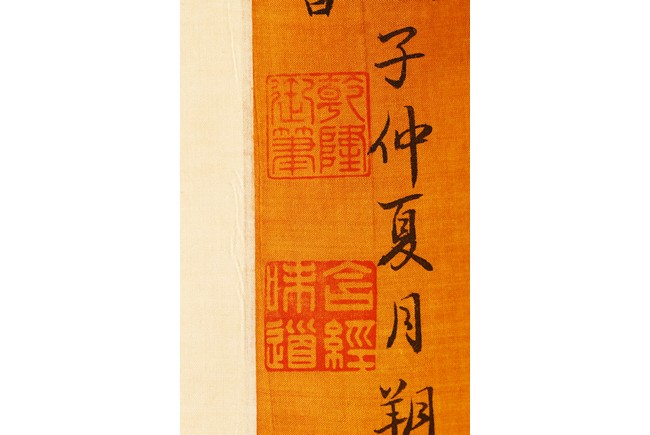 子仲夏月朔
乾隆
御筆
含經
味道